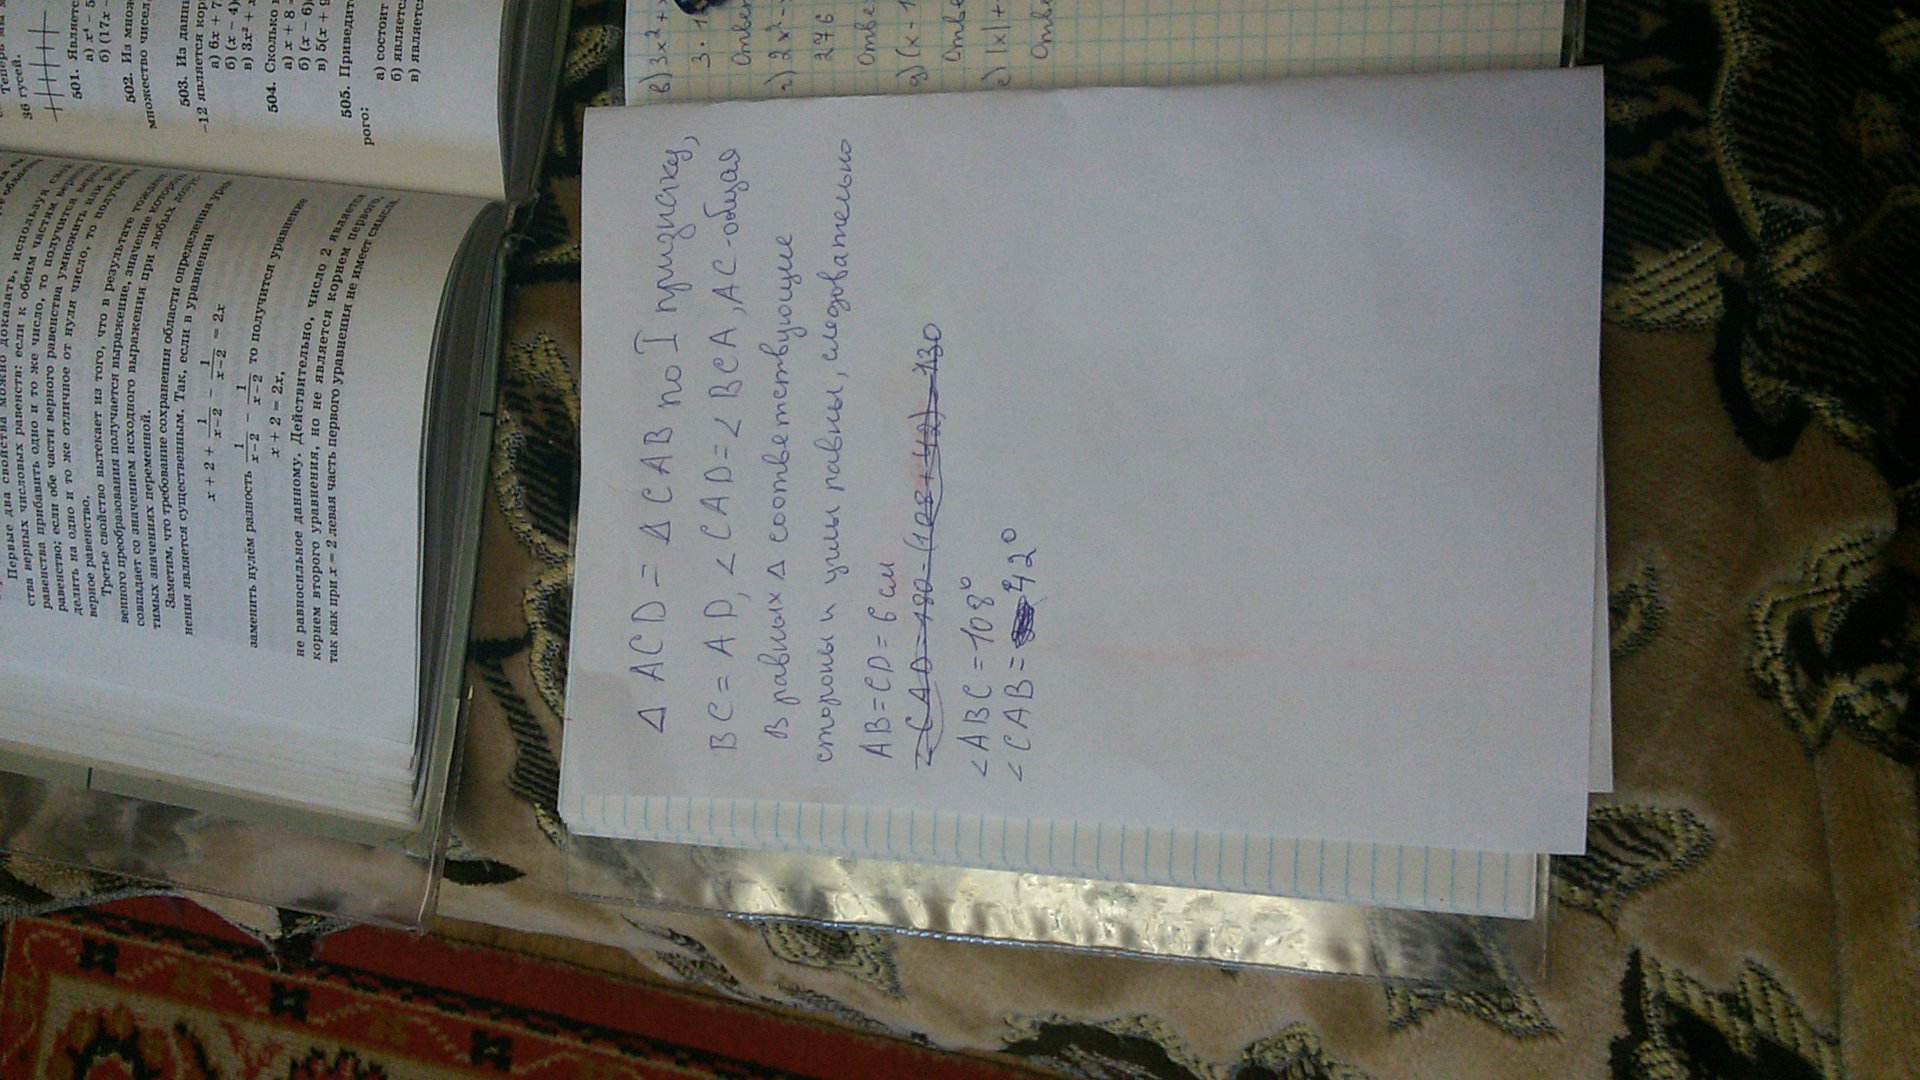 Первые два свойства можно доказать, используя
ства верных числовых равенств: если к обеим частям
равенства прибавить одно и то же число, то получится
равенство; если обе части верного равенства умножить или
делить на одно и то же отличное от нуля число, то получится
верное равенство.
Третье свойство вытекает из того, что в результате
венного преобразования получается выражение, значение
совпадает со значением исходного выражения при любых
тимых значениях переменной.
Заметим, что требование сохранения области определения
нения является существенным. Так, если в уравнении
x + 2 + 1/(x−2) − 1/(x−2) = 2x
заменить нулём разность 1/(x−2) − 1/(x−2) то получится уравнение
x + 2 = 2x,
не равносильное данному. Действительно, число 2 является
корнем второго уравнения, но не является корнем первого,
так как при x = 2 левая часть первого уравнения не имеет смысла.
36 гусей.
501. Являетс
а) x⁴ − 5
б) (17x −
502. Из множ
множество чисел,
503. Из данн
−12 является кор
а) 6x + 7
б) (x − 4)
в) 3x² + x
504. Сколько к
а) x + 8 =
б) (x − 6)
в) 5(x + 9
505. Приведит
рого:
а) состоит
б) является
в) является
в) 3x² + x
3 · 1
Ответ
г) 2x² -
276
Отве
д) (x - 1
Отве
е) |x| +
Отве
Δ ACD = Δ CAB по I признаку,
BC = AD, ∠CAD = ∠BCA, AC - общая
В равных Δ соответствующие
стороны и углы равны, следовательно
AB = CD = 6 см
∠CAD = 180 - (108 + 42) = 130
∠ABC = 108°
∠CAB = 42°